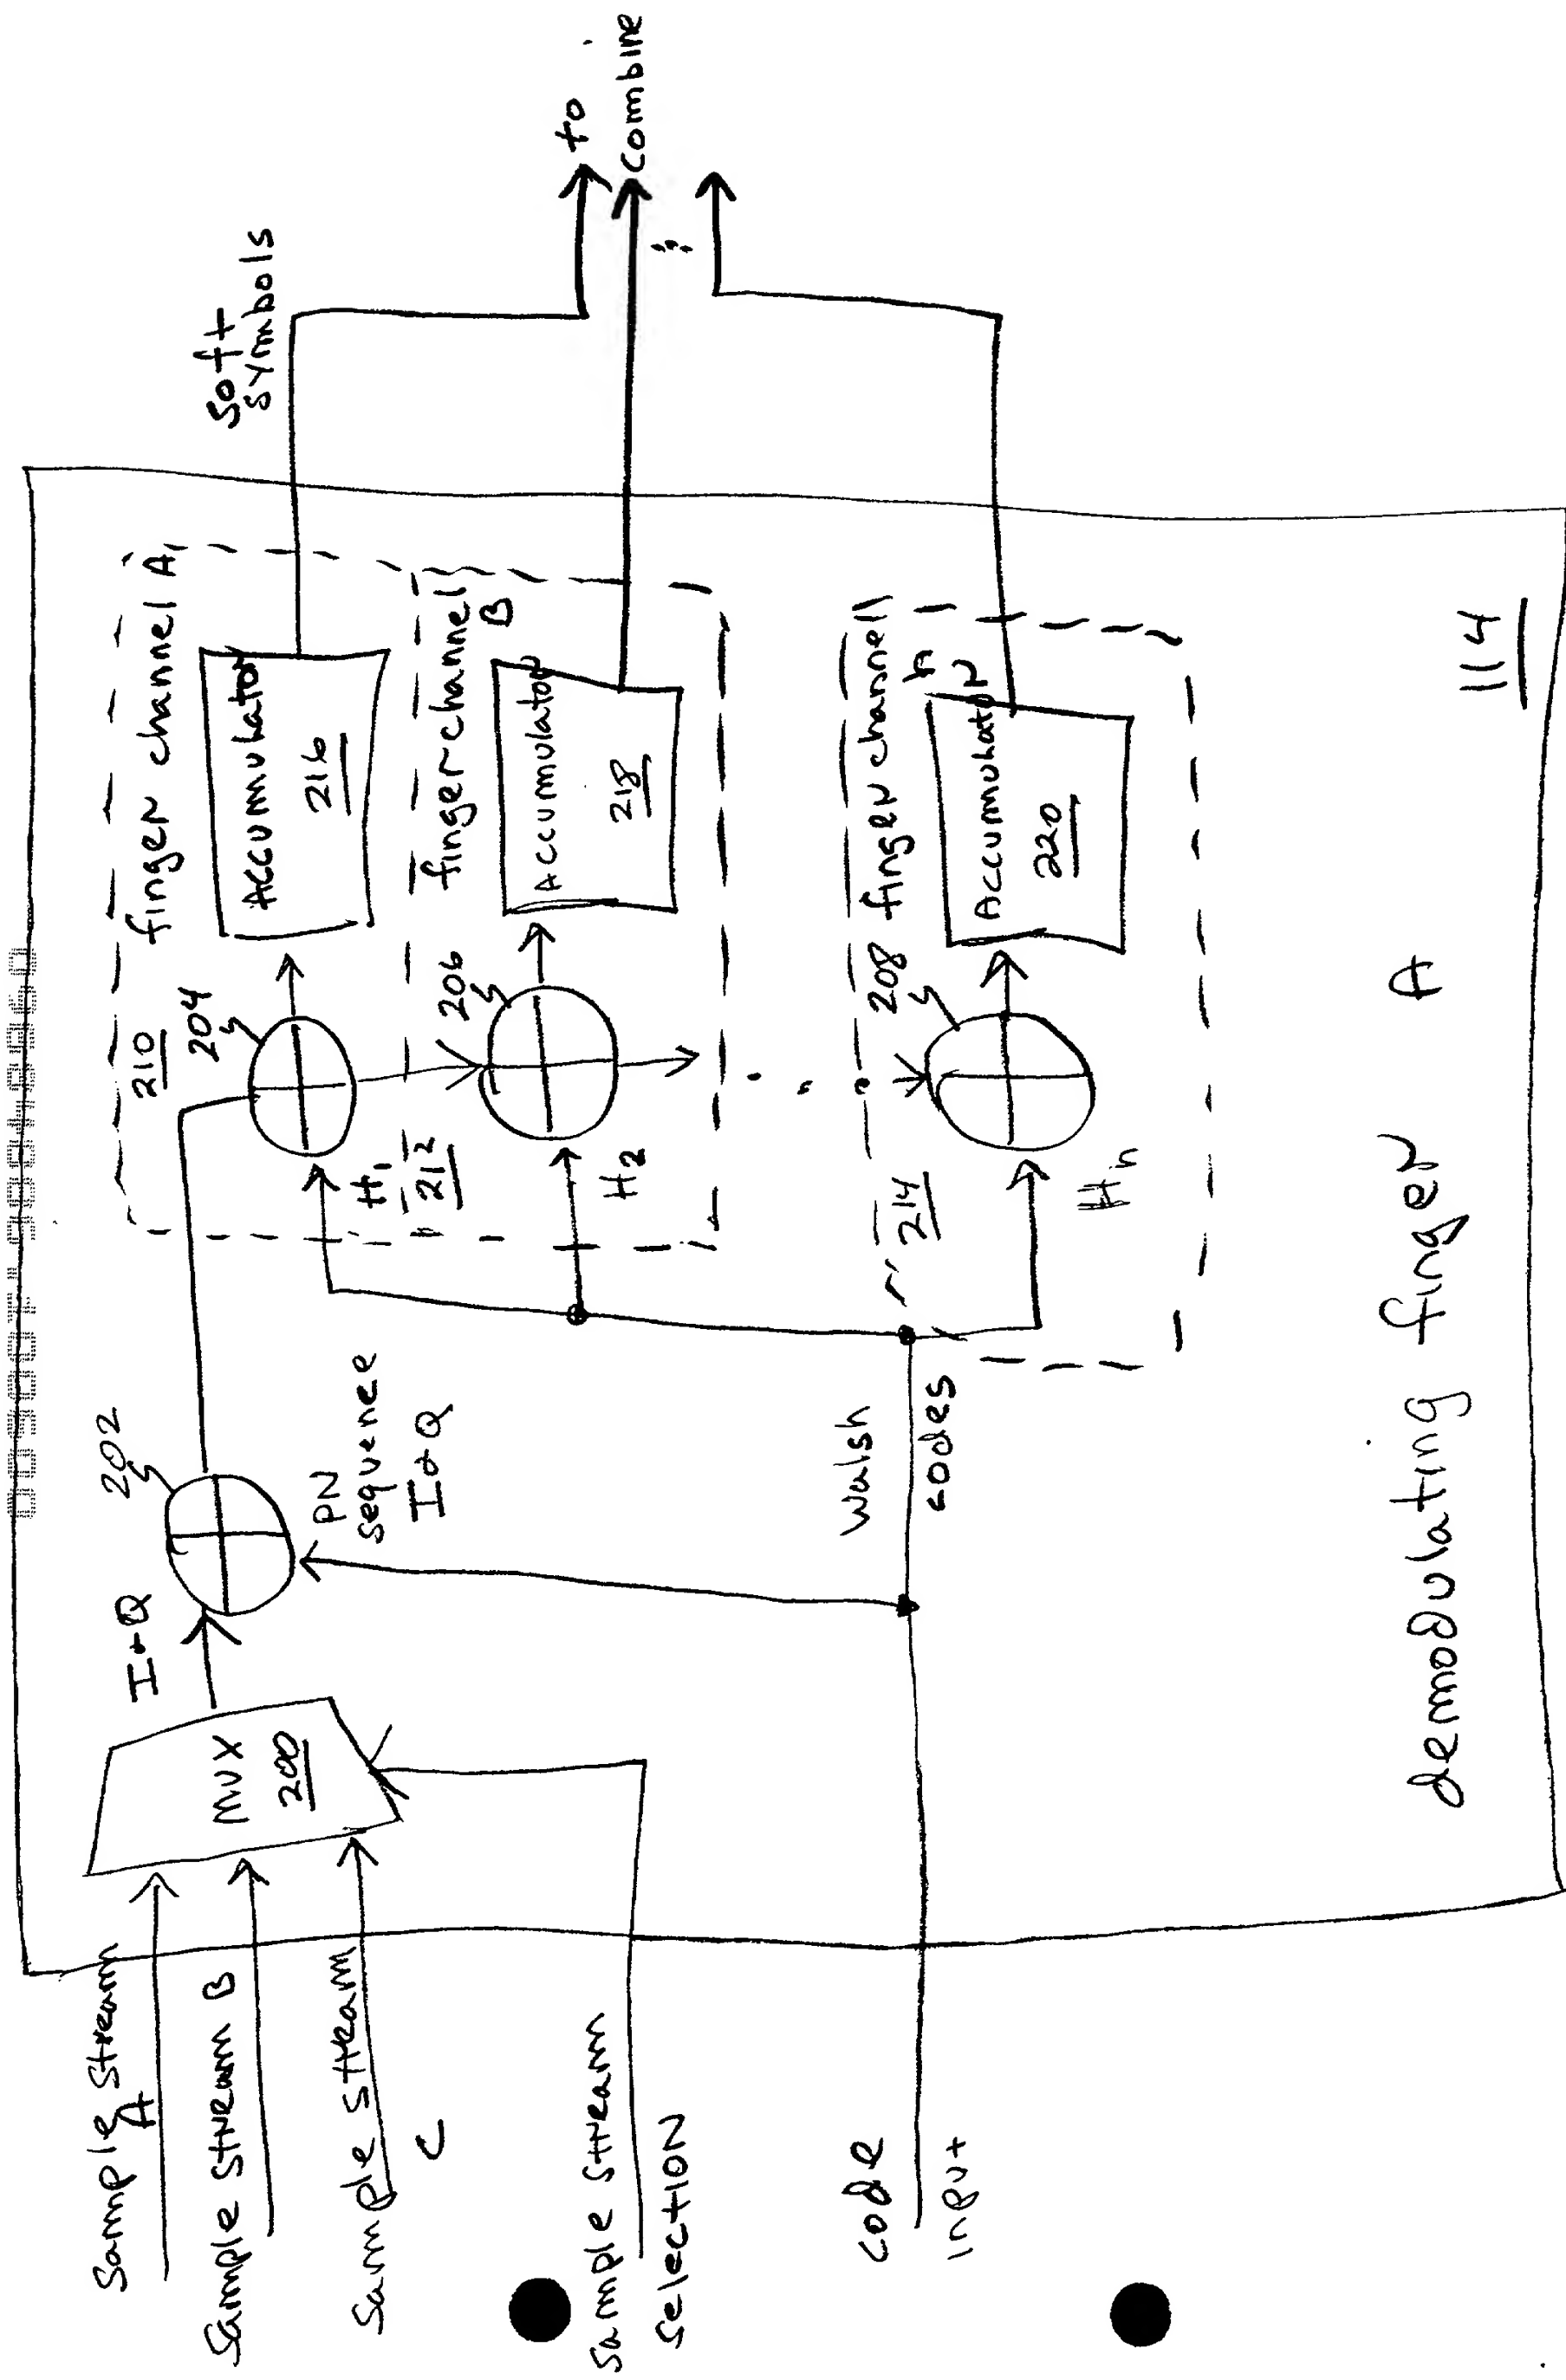 Sample Stream
A
Sample Stream B
Sample Stream
C
Sample Stream
Selection
code
Input
MUX
200
I+Q
202
PN
sequence
I+Q
Walsh
codes
210
finger channel A1
204
H1
Accumulator
216
212
finger channel
B
206
H2
Accumulator
218
214
finger channel
n
208
Hn
Accumulator
220
soft
symbols
to
combine
demodulating finger A
114